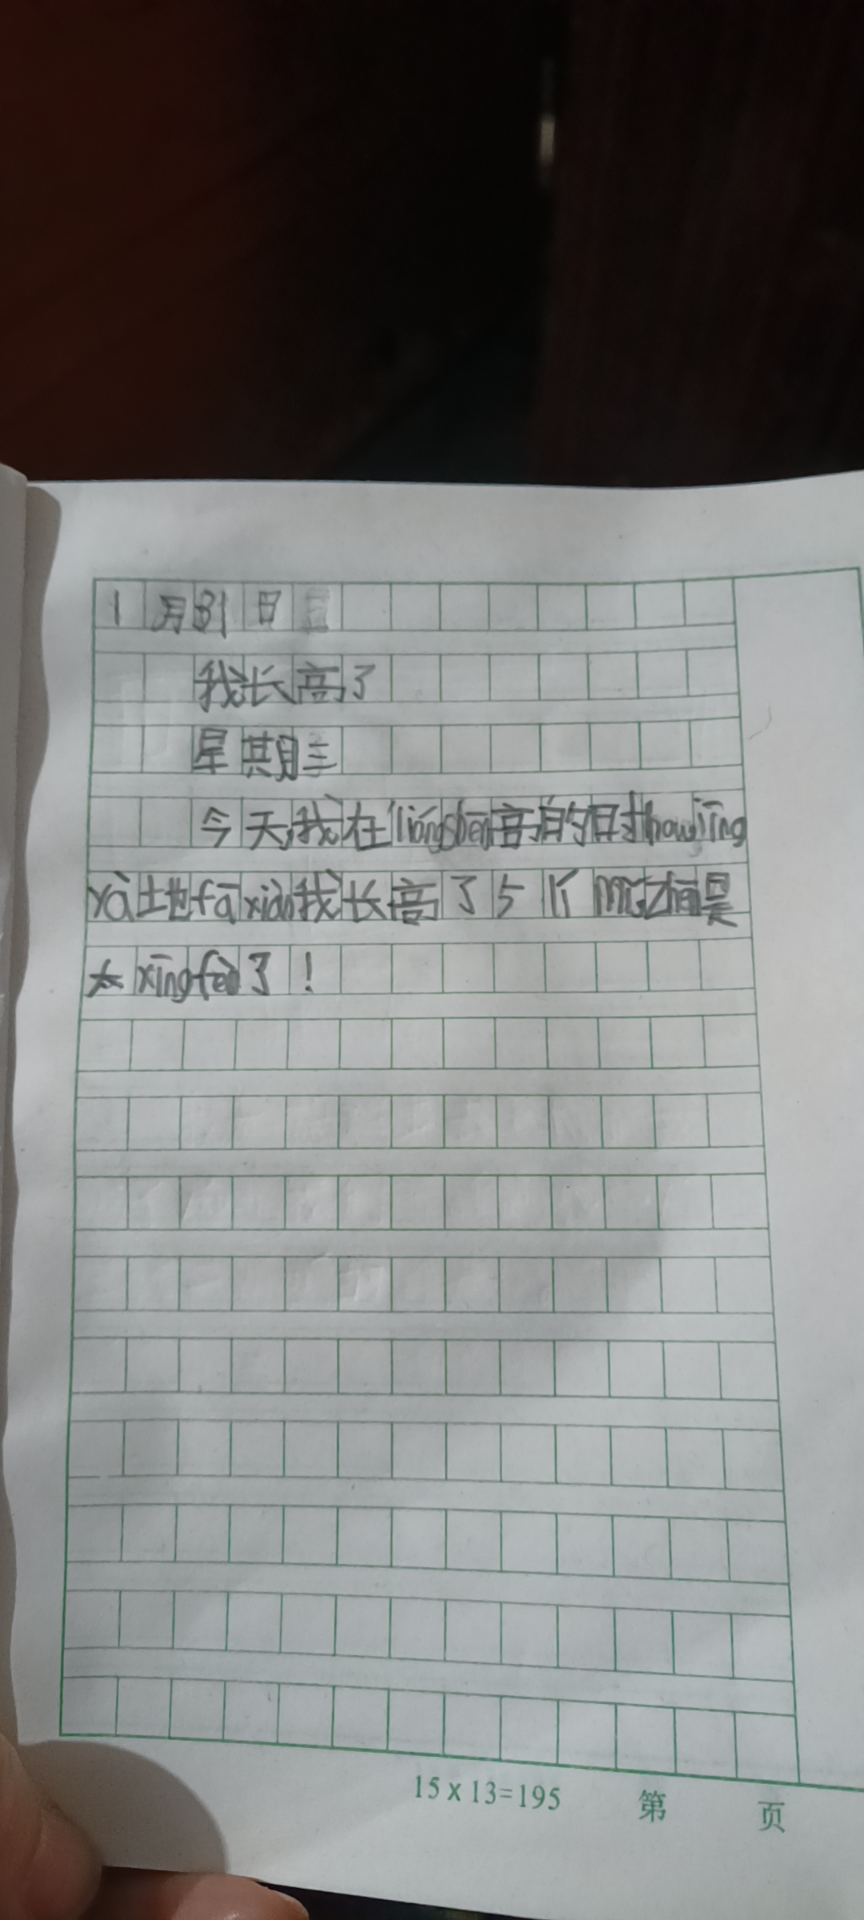 1月31日
我长高了
星期三
今天我在liángshēn高的时houjīng
yà地fāxiàn我长高了5 mǐ
太xīngfèn了！
15×13=195 第 页